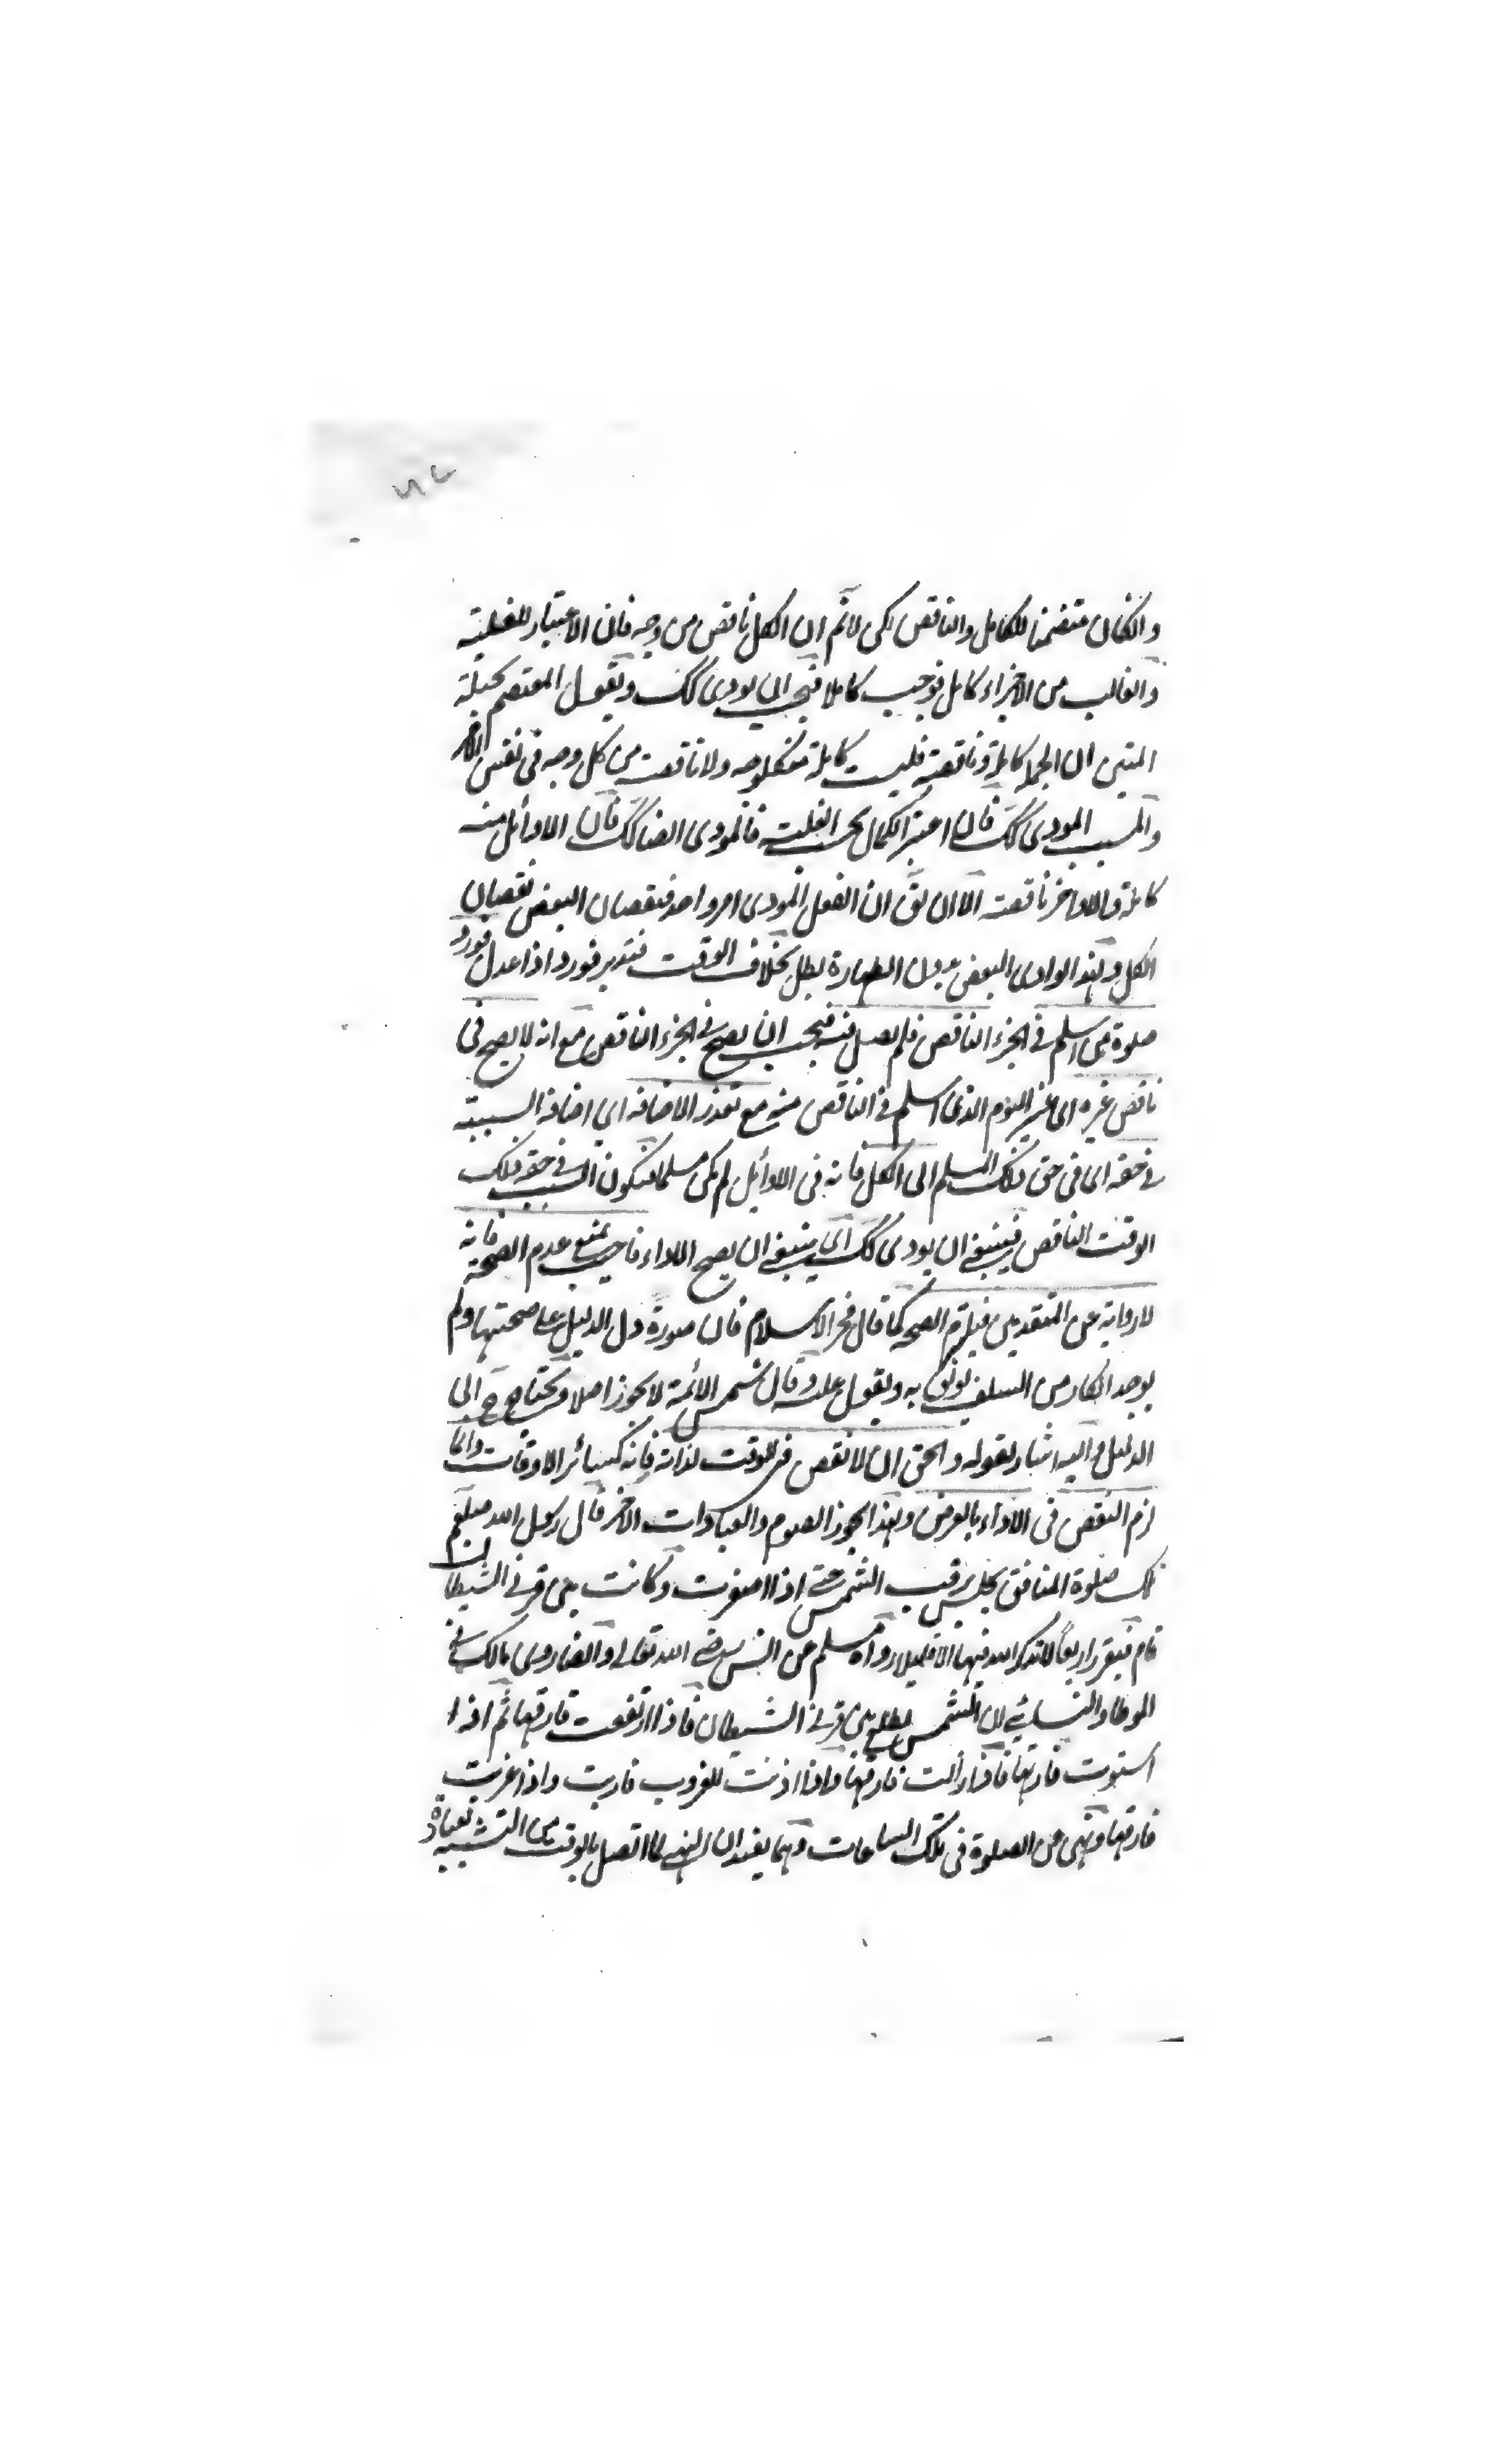 والكان متضمنا للكامل والناقص لكن لانم ان الكل ناقص من وجه فان الاعتبار للغلبة
والغالب من الاجزاء كامل فوجب كاملا فيجب ان يودى كك ويقول المعتصم بحبله
المتين ان الجملة كاملة وناقصة فليست كاملة من كل وجه ولا ناقصة من كل وجه فى نفس الامر
والمسبب المودى كك فان اعتبر الكمال بحسب الغلبة فالمودى ايضا كك فان الاوائل منه
كاملة والاواخر ناقصة الا ان يق ان الفعل المودى امر واحد فنقصان البعض نقصان
الكل ولهذا لو ادى البعض بدون الطهارة بطل بخلاف الوقت فتدبر فورد اذا عدل فورد
صلوة من اسلم فى الجزء الناقص فلم يصل فيه فيجب ان يصح فى الجزء الناقص مع انه لا يصح فى
ناقص غيره اى غير اليوم الذى اسلم فى الناقص منه مع تعذر الاضافة اى اضافة السببية
فى حقه اى فى حق ذلك المسلم الى الكل فانه فى الاوائل لم يكن مسلما فيكون السبب فى حقه ذلك
الوقت الناقص فينبغى ان يودى كك اى ينبغى ان يصح الاداء فاجيب بمنع عدم الصحة فانه
لا رواية عن المتقدمين فيلتزم الصحة كما قال فخر الاسلام فان صورة دل الدليل على صحتها ولم
يوجد انكار من السلف يوثق به ويقول عليه وقال شمس الائمة لا يجوز اصلا ويحتاج ح الى
الدليل واليه اشار بقوله والحق ان لا نقص فى الوقت لذاته فانه كسائر الاوقات وانما
لزم النقص فى الاداء بالعرض ولهذا يجوز الصوم والعبادات الاخر قال رسول الله صلعم
تلك صلوة المنافق يجلس يرقب الشمس حتى اذا اصفرت وكانت بين قرنى الشيطان
قام فينقر اربعا لا يذكر الله فيها الا قليلا رواه مسلم عن انس رضى الله تعالى وايضا روى مالك فى
الموطا والنسائى ان الشمس تطلع بين قرنى الشيطان فاذا ارتفعت فارقها ثم اذا
استوت قارنها فاذا زالت فارقها واذا اذنت للغروب قارنت واذا غربت
فارقها ونهى عن الصلوة فى تلك الساعات وهما يفيدان ان النهى لما اتصل بالوقت من التشبيه بعبادة